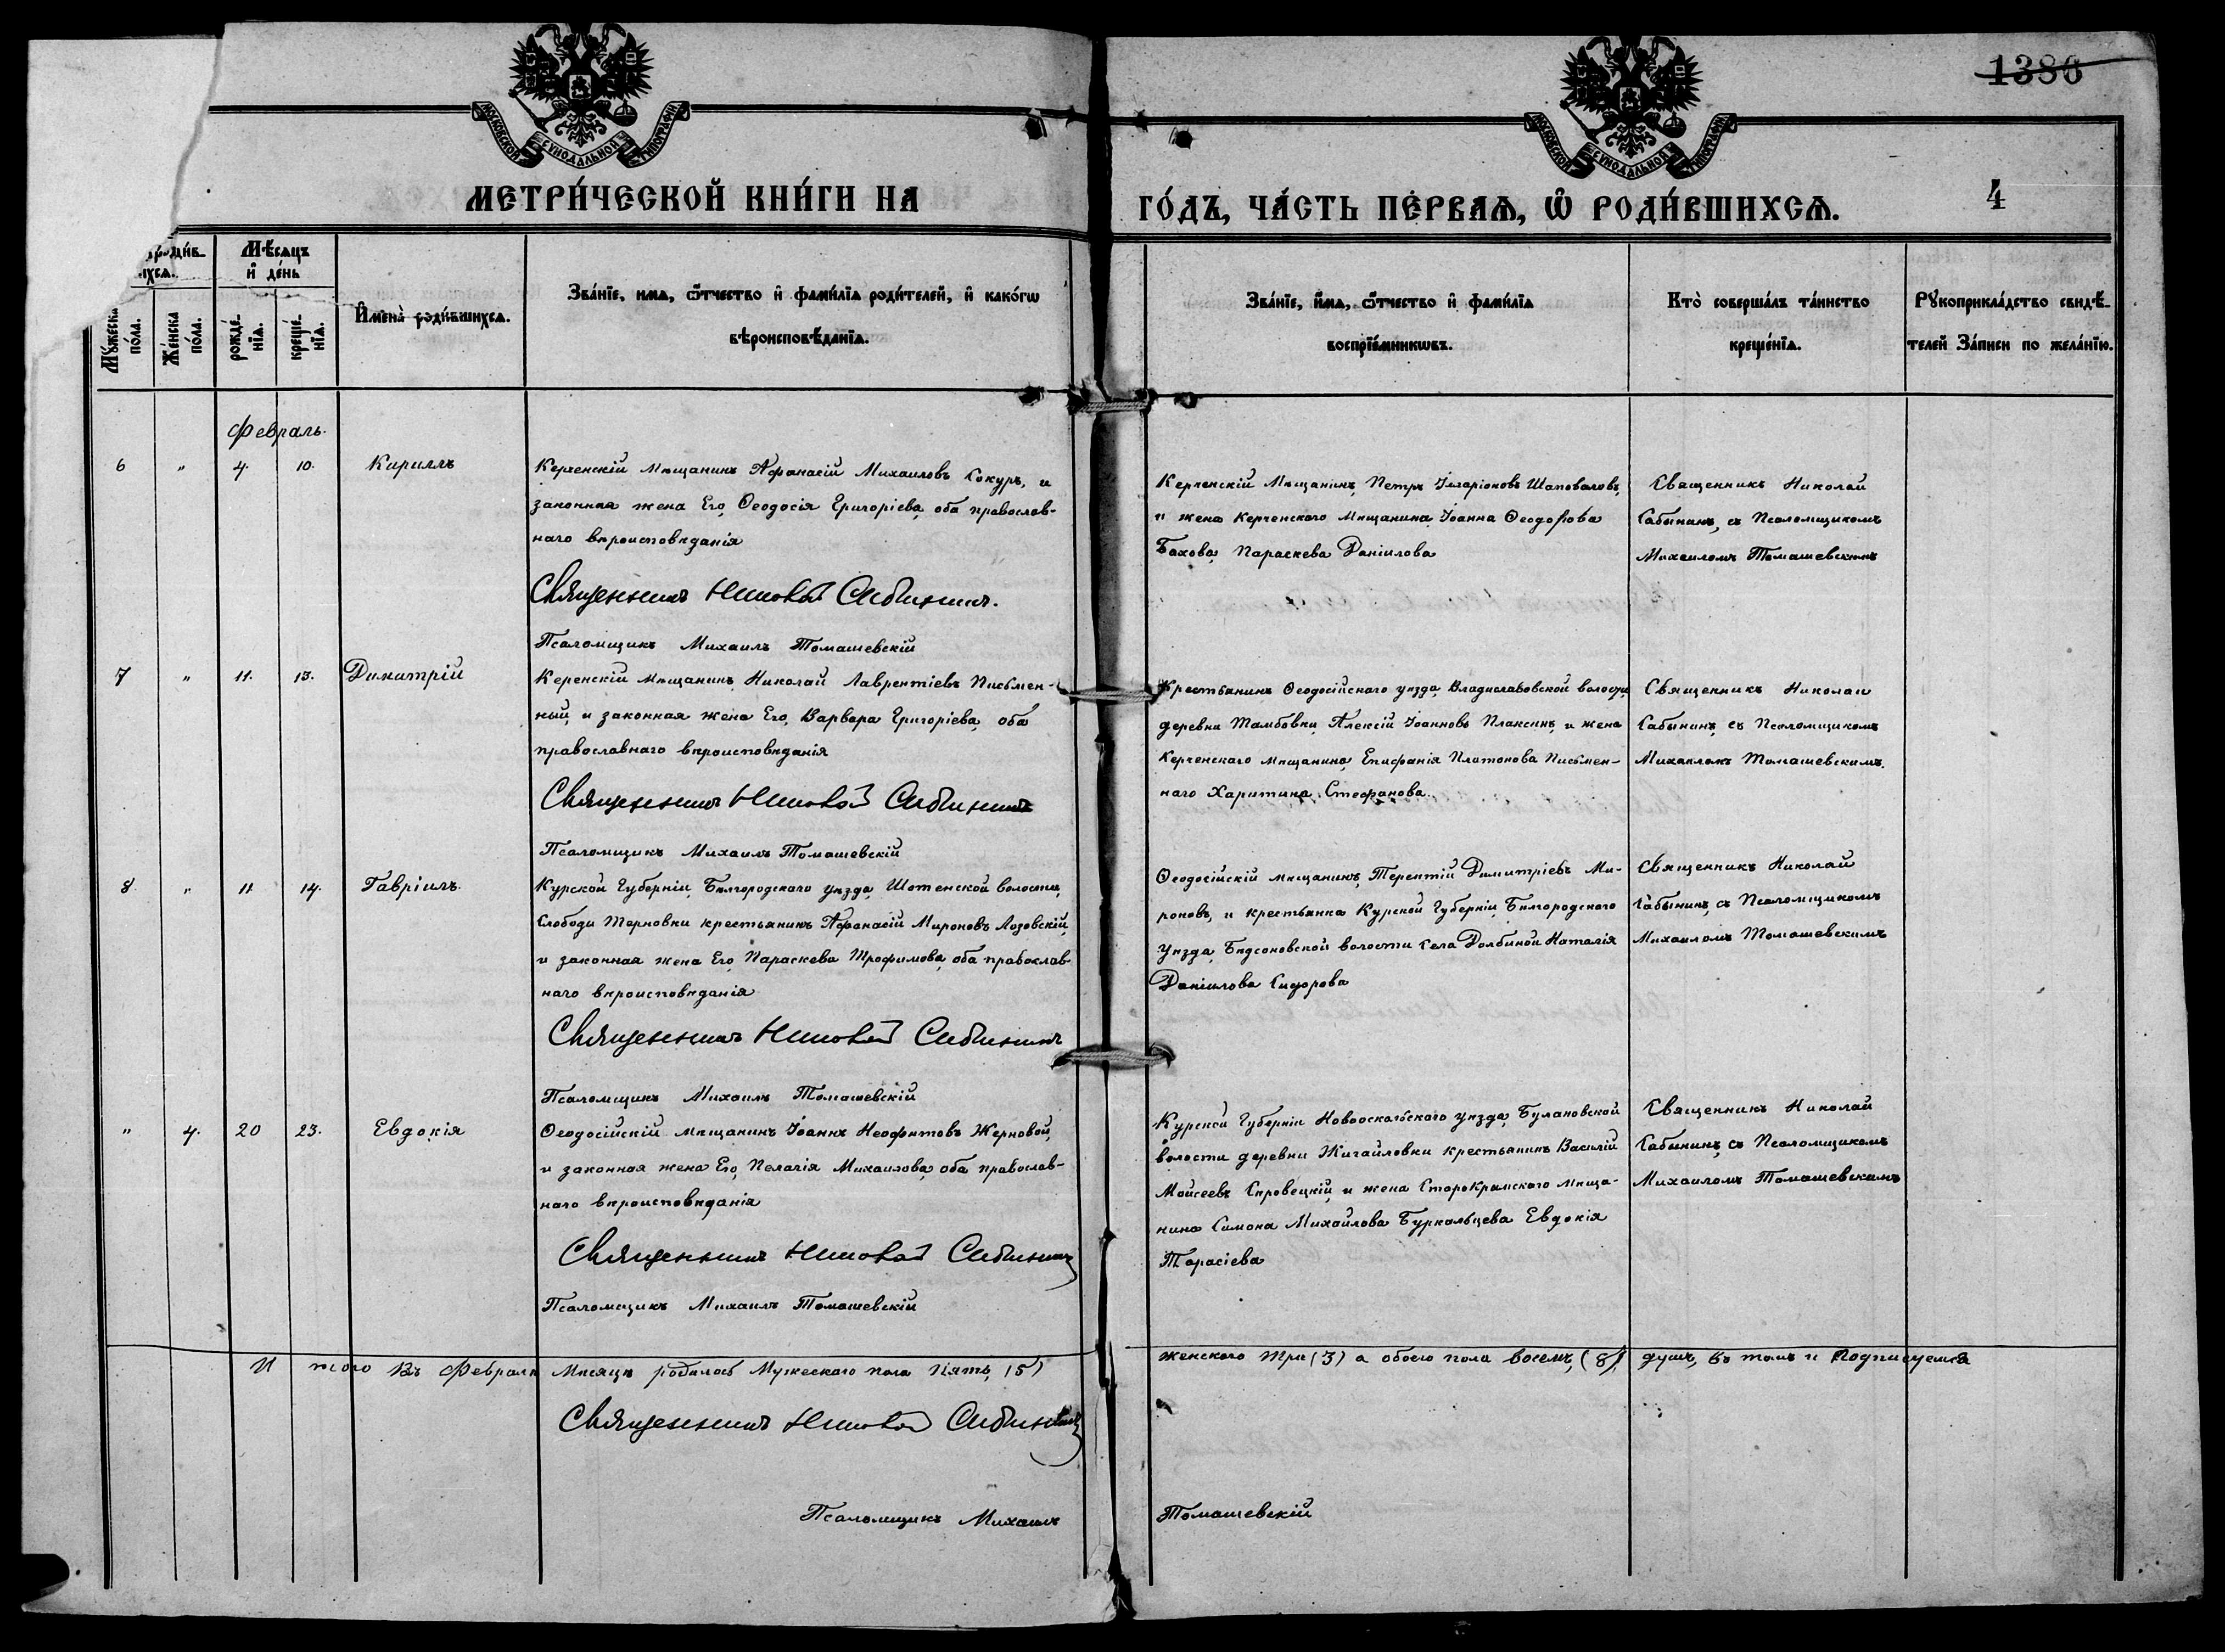 1386
МОСКОВСКОЙ СѴНОДАЛЬНОЙ ТИПОГРАФІИ
МОСКОВСКОЙ СѴНОДАЛЬНОЙ ТИПОГРАФІИ
МЕТРИ́ЧЕСКОЙ КНИ́ГИ НА
ГО́ДЪ, ЧА́СТЬ ПЕ́РВАѦ, Ѡ РОДИ́ВШИХСѦ.
4
Мѣ́сяцъ
и҆ де́нь
Мꙋ́жеска
по́ла.
Же́нска
по́ла.
рожде́-
нїѧ.
креще́-
нїѧ.
И҆мена̀ роди́вшихсѧ.
Зва́нїе, имѧ, ѻ҆́тчество и҆ фами́лїа роди́телей, и҆ како́гѡ
вѣроисповѣ́данїѧ.
Зва́нїе, и҆́мѧ, ѻ҆́тчество и҆ фами́лїа
воспрїе́мникѡвъ.
Кто̀ соверша́лъ та́инство
креще́нїѧ.
Рꙋкоприкла́дство свидѣ́-
телей За́писи по жела́нїю.
Февраль.
6 " 4. 10. Кириллъ
Керченскій Мѣщанинъ Афанасій Михаиловъ Сокуръ, и
законная жена Его, Ѳеодосія Григоріева, оба православ-
наго вѣроисповѣданія
Священникъ Николай Сабининъ.
Псаломщикъ Михаилъ Томашевскій
Керченскій Мѣщанинъ, Петръ Іларіоновъ Шаповаловъ,
и жена Керченского Мѣщанина Іоанна Ѳеодорова
Бахова, Параскева Даніилова
Священникъ Николай
Сабынинъ, съ Псаломщикомъ
Михаиломъ Томашевскимъ
7 " 11. 13. Димитрій
Керенскій Мѣщанинъ, Николай Лаврентіевъ Письмен-
ный, и законная жена Его, Варвара Григоріева, оба
православнаго вѣроисповѣданія
Священникъ Николай Сабининъ
Псаломщикъ Михаилъ Томашевскій
Крестьянинъ Ѳеодосійскаго уѣзда, Владиславовской волости,
деревни Тамбовки, Алексій Іоанновъ Плаксинъ, и жена
Керченскаго мѣщанина, Епифанія Платонова Письмен-
наго Харитина Стефанова.
Священникъ Николаи
Сабынинъ, съ Псаломщикомъ
Михаиломъ Томашевскимъ.
8. " 11 14. Гавріилъ.
Курской Губерніи, Бѣлгородскаго уѣзда, Шотенской волости,
Слободи Терновки крестьянинъ Афанасій Мироновъ Лозовскій,
и законная жена Его, Параскева Трофимова, оба православ-
наго вѣроисповѣданія
Священникъ Николай Сабининъ
Псаломщикъ Михаилъ Томашевскій
Ѳеодосійскій мѣщанинъ, Терентій Димитріевъ Ми-
роновъ, и крестьянка Курской Губерніи, Бѣлгородскаго
Уѣзда, Бѣдсоновской волости села Долбиной Наталія
Даніилова Сидорова
Священникъ Николай
Сабынинъ, съ Псаломщикомъ
Михаиломъ Томашевскимъ
" 4. 20 23. Евдокія
Ѳеодосійскій мѣщанинъ Іоаннъ Неофитовъ Жерновой,
и законная жена Его, Пелагія Михаилова, оба православ-
наго вѣроисповѣданія
Священникъ Николай Сабининъ
Псаломщикъ Михаилъ Томашевскій
Курской Губерніи Новооскольскаго уѣзда, Булановской
волости деревни Жигайловки крестьянинъ Василій
Моисеевъ Скровецкій, и жена СтароКрымского Мѣща-
нина Симона Михайлова Буркальцева Евдокія
Тарасіева
Священникъ Николай
Сабынинъ, съ Псаломщикомъ
Михаиломъ Томашевскимъ
И того Въ Февралѣ Мѣсяцѣ родилось Мужескаго пола Пять, (5) женского три (3) а обоего пола восемъ, (8) душъ, въ томъ и Подписуемся
Священникъ Николай Сабининъ
Псаломщикъ Михаилъ Томашевскій